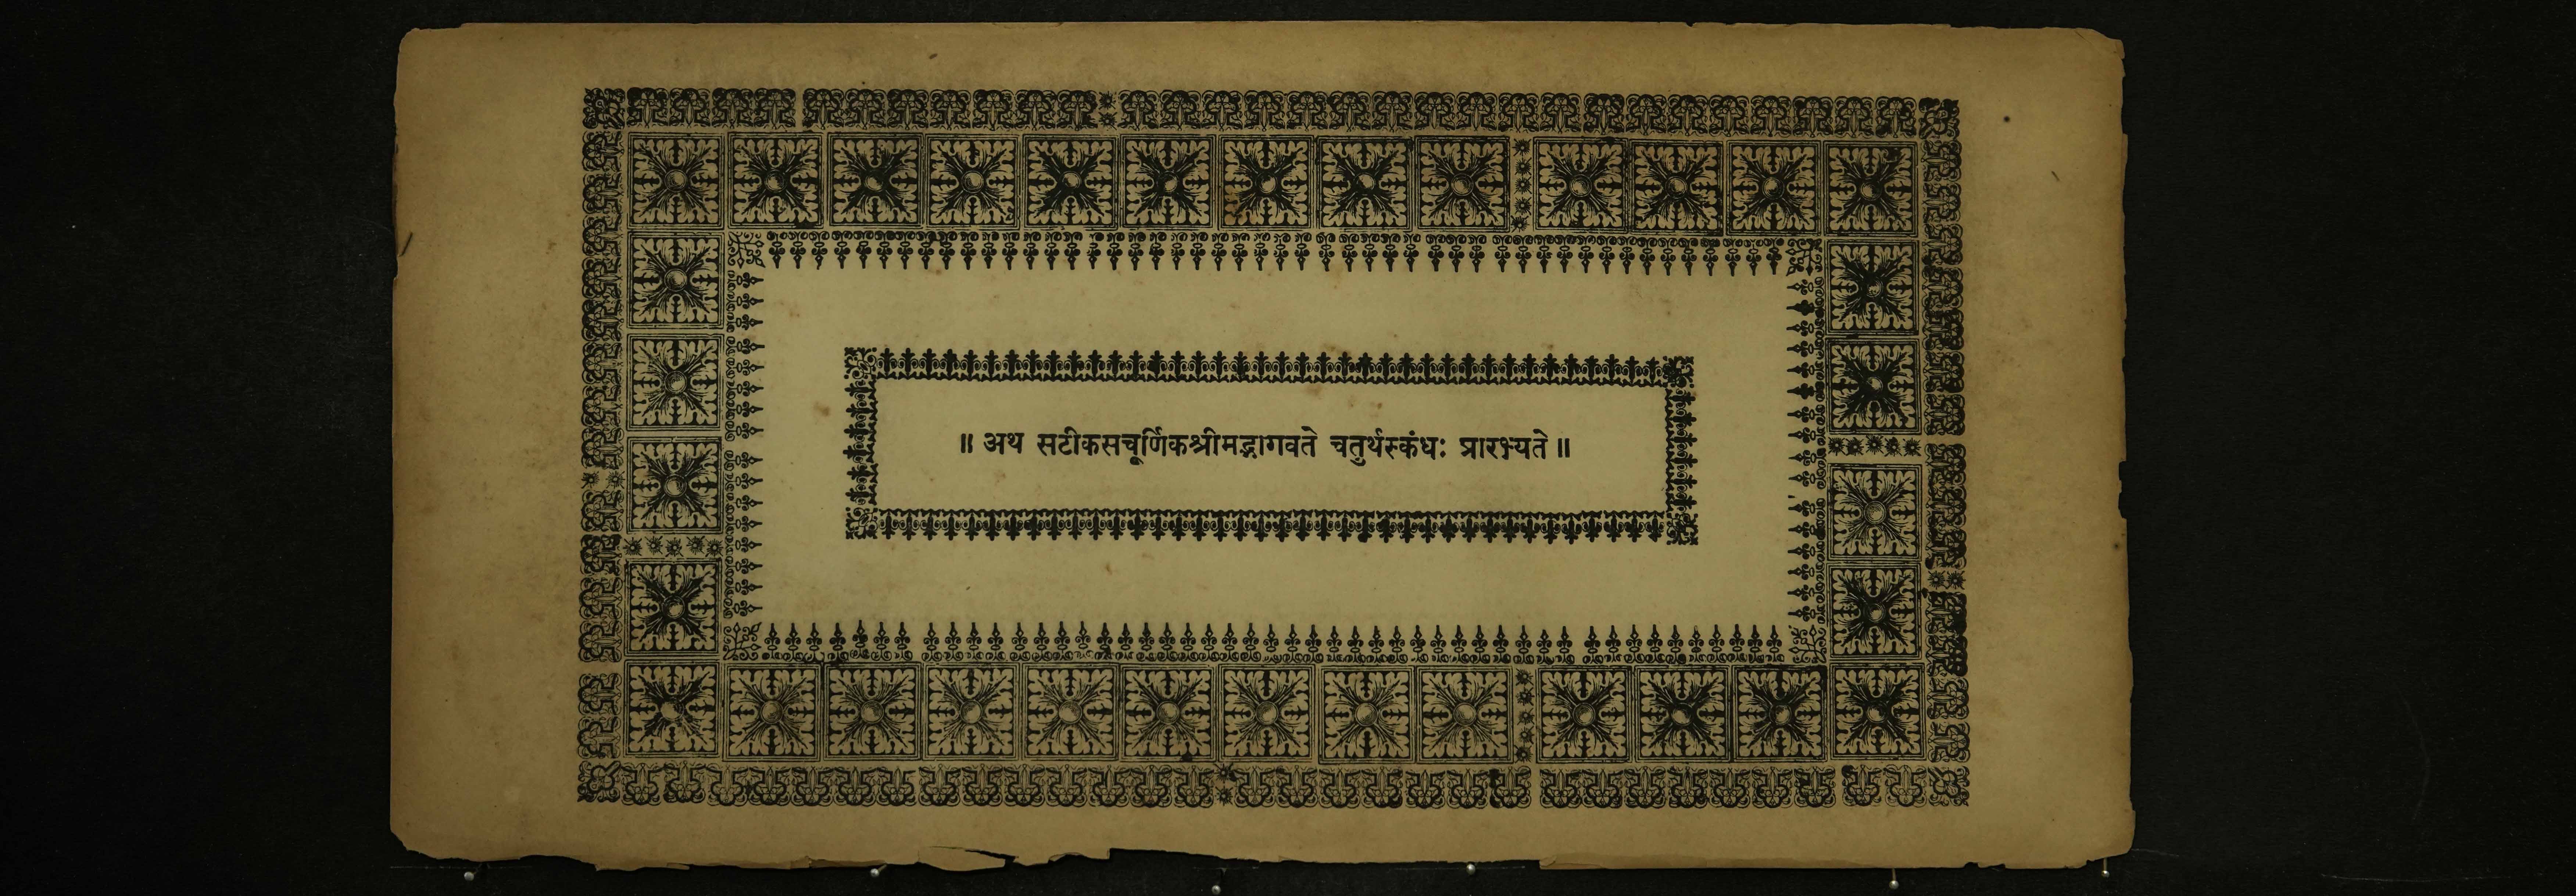 ॥ अथ सटीकसचूर्णिकश्रीमद्भागवते चतुर्थस्कंधः प्रारभ्यते ॥